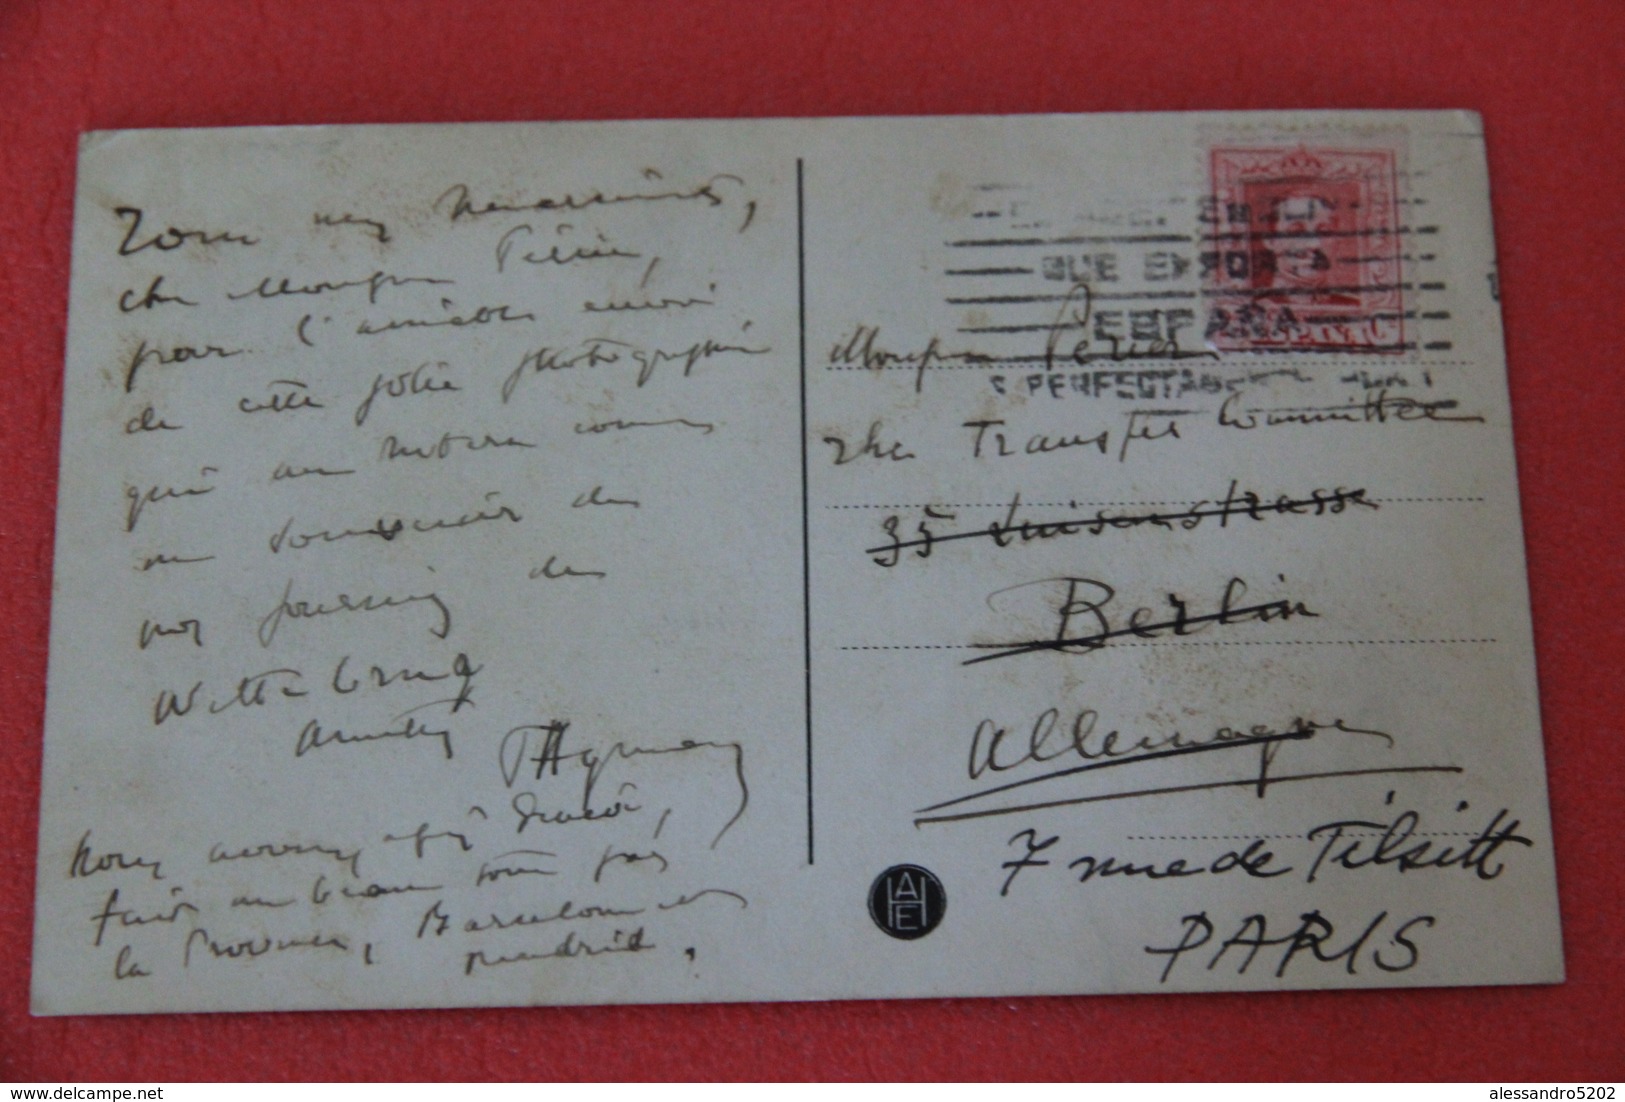 Tous nos remerciements,
cher Monsieur Périer,
pour l'aimable envoi
de cette jolie photographie
qui au notera comme
un souvenir de
nos journées de
Wittenberg
Amitiés
Nous avons après
fait un beau tour par
la Provence, Barcelone et
Madrid.
QUE EXPORTA
ESPAÑA
PERFECTA
Monsieur Périer
The Transfer Committee
35 Luisenstrasse
Berlin
Allemagne
7 rue de Tilsitt
PARIS
HAE
alessandro5202